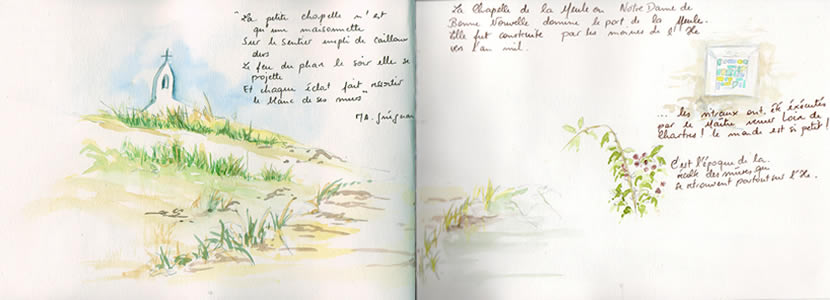 "La petite chapelle n'est
qu'une maisonnette
Sur le sentier empli de cailloux
durs
Le feu du phare le soir elle se
projette
Et chaque éclat fait ressortir
le blanc de ses murs"
MA. Guignan
La Chapelle de la Meule ou Notre Dame de
Bonne Nouvelle domine le port de la Meule.
Elle fut construite par les moines de l'Ile
vers l'an mil.
... les vitraux ont été exécutés
par le Maître verrier Loire de
Chartres ! le monde est si petit !
C'est l'époque de la
des mûres qui
se retrouvent partout sur l'Ile.